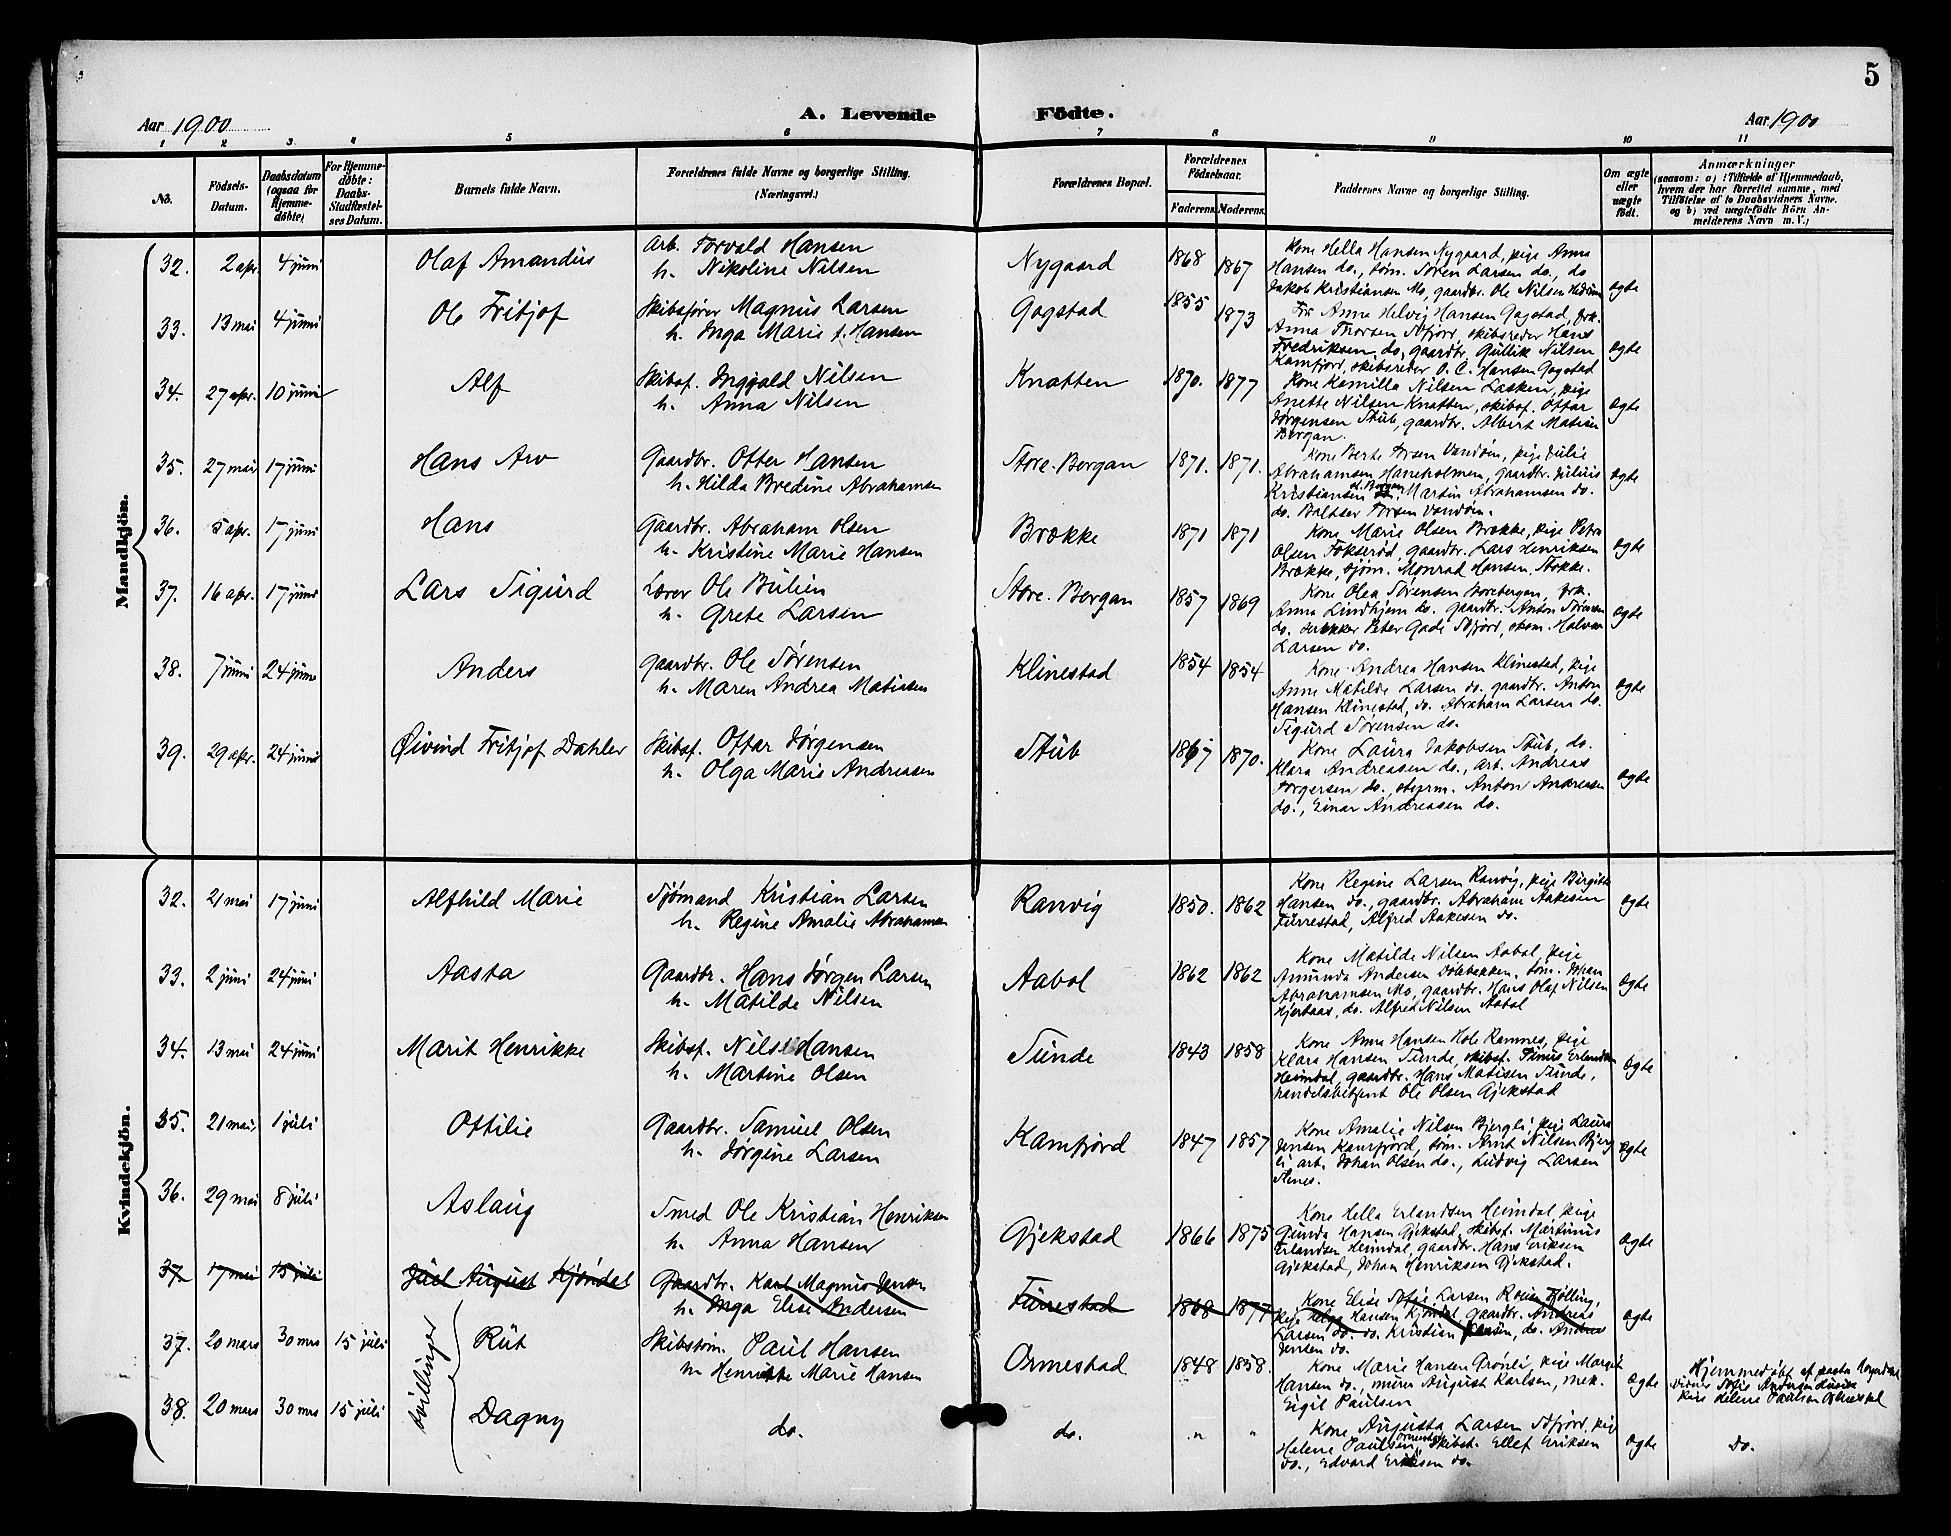 5
Aar 1900
A. Levende Födte.
Aar 1900
1 2 3 4 5 6 7 8 9 10 11
No.
Födsels-Datum.
Daabsdatum (ogsaa for Hjemme-döbte)
For Hjemme-döbte: Daabs-Stadfæstel-ses Datum.
Barnets fulde Navn.
Forældrenes fulde Navne og borgerlige Stilling. (Næringsvei.)
Forældrenes Bopæl.
Forældrenes Födselsaar.
Faderens. Moderens.
Faddernes Navne og borgerlige Stilling.
Om ægte eller uægte födt.
Anmærkninger
(saasom: a) i Tilfælde af Hjemmedaab,
hvem der har forrettet samme, med
Tilföielse af to Daabsvidners Navne.
og b) ved uægtefödte Börn An-
melderens Navn m. V.)
Mandkjön.
32. 2 apr. 4 juni Olaf Amandus
Arb. Torvald Hansen
h. Nikoline Nilsen
Nygaard 1868 1867
Kone Hella Hansen Nygaard, pige Anna
Hansen do., søm. Søren Larsen do., do
Jakob Kristiansen Mo, gaardbr. Ole Nilsen
ægte
33. 13 mai 4 juni Ole Fritjof
Skibsfører Magnus Larsen
h. Inga Marie f. Hansen
Gogstad 1855 1873
Fr. Anne Helvig Hansen Gogstad, frk.
Anna Thorsen Sfjord, skibsreder Hans
Fredriksen do, gaardbr. Gullik Nilsen
Kamfjord, skibsreder O. C. Hansen Gogstad
ægte
34. 27 apr. 10 juni Alf
Skibsf. Ingvald Nilsen
h. Anna Nilsen
Knatten 1870. 1877
Kone Kamilla Nilsen Lasken, pige
Anette Nilsen Knatten, skibsf. Ottar
Jørgensen Stub, gaardbr. Albert Matisen
Bergan.
ægte
35. 27 mai 17 juni Hans Arv
Gaardbr. Otter Hansen
h. Hilda Bredine Abrahamsen
Store. Bergan 1871. 1871.
Kone Berte Torsen Vandøen, pige Julie
Abrahamsen Haneholmen, gaardbr. Julius
Kristiansen st. Bergan, Martin Abrahamsen do.
do. Baltser Torsen Vandøen.
ægte
36. 5 apr. 17 juni Hans
Gaardbr. Abraham Olsen
h. Kristine Marie Hansen
Brække 1871 1871
Kone Marie Olsen Brække, pige Petra
Olsen Fokserød, gaardbr. Lars Henriksen
Brække, sjøm. Monrad Hansen, Stokke.
ægte
37. 16 apr. 17 juni Lars Sigurd
Lærer Ole Bulien
h. Grete Larsen
Store. Bergan 1857 1869
Kone Olea Sørensen Storebergan, frk.
Anna Lindhjem do. gaardbr. Anton Sørensen
do. Peter Gade Sfjord, Halvor
Larsen do.
ægte
38. 7 juni 24 juni Anders
Gaardbr. Ole Sørensen
h. Maren Andrea Matisen
Klinestad 1854 1854
Kone Andrea Hansen Klinestad, pige
Anne Matilde Larsen do. gaardbr. Anton
Hansen Klinestad, do. Abraham Larsen do.
Sigurd Sørensen do.
ægte
39. 29 apr. 24 juni Øivind Fritjof Dahler
Skibsf. Ottar Jørgensen
h. Olga Marie Andreasen
Stub 1867 1870.
Kone Laura Jakobsen Stub, do.
Klara Andreasen do., arb. Andreas
Jørgensen do., styrm. Anton Andreasen
do., Einar Andreasen do.
ægte
Kvindekjön.
32. 21 mai 17 juni Alfhild Marie
Sjømand Kristian Larsen
h. Regine Amalie Abrahamsen
Ranvig 1850. 1862
Kone Regine Larsen Ranvig, pige Birgitte
Hansen do., gaardbr. Abraham Aakesen
Furrestad, Alfred Aakesen do.
ægte
33. 2 juni 24 juni Aasta
Gaardbr. Hans Jørgen Larsen
h. Matilde Nilsen
Aabol 1862 1862
Kone Matilde Nilsen Aabol, pige
Amunda Andersen Dølebakken, søm. Johan
Abrahamsen Mo, gaardbr. Hans Olaf Nilsen
Hjertaas, do. Alfred Nilsen Aabol
ægte
34. 13 mai 24 juni Marit Henrikke
Skibsf. Nils Hansen
h. Martine Olsen
Sunde 1843 1858
Kone Anna Hansen Hole Ramnes, pige
Klara Hansen Sunde, skibsf. Tinus Erlandsen
Heimdal, gaardbr. Hans Matisen Sunde,
handelsbetjent Ole Olsen Gjekstad
ægte
35. 21 mai, 1 juli Ottilie
Gaardbr. Samuel Olsen
h. Jørgine Larsen
Kamfjord 1847 1857
Kone Amalie Nilsen Bjergli, pige Laura
Jensen Kamfjord, søm. Arnt Nilsen Bjerg
li, arb. Johan Olsen do., Ludvig Larsen
Stenes.
ægte
36. 29 mai 8 juli Aslaug
Smed Ole Kristian Henriksen
h. Anna Hansen
Gjekstad 1866 1875
Kone Hella Erlandsen Heimdal, pige
Gunda Hansen Gjekstad, skibsf. Martinius
Erlandsen Heimdal, gaardbr. Hans Eriksen
Gjekstad, Johan Henriksen Gjekstad.
ægte
37 17 mai 15 juli Juel August Kjøndal
Gaardbr. Karl Magnus Jensen
h. Inga Elise Andersen
Furrestad 1868 1877
Kone Elise Sofie Larsen
pige Hansen Kjøndal, gaardbr. Andreas
Larsen do. do. Kristian do. Andreas
Jensen do.
ægte
tvillinger
37. 20 mars 30 mrs 15 juli Rut
Skibstøm. Paul Hansen
h. Henriette Marie Hansen
Ormestad 1848 1858.
Kone Marie Hansen Grønli, pige Margit
Hansen do., murer August Karlsen, mek.
Eigil Paulsen
ægte
Hjemmedøbt af pastor
vidner Sofie Andersen
Pige Helene Paulsen
38. 20 mars 30 mrs 15 juli Dagny
do.
do. " "
Kone Augusta Larsen Sfjord, pige
Helene Paulsen Ormestad, skibst. Ellef Eriksen
do., Edvard Eriksen do.
ægte
do.